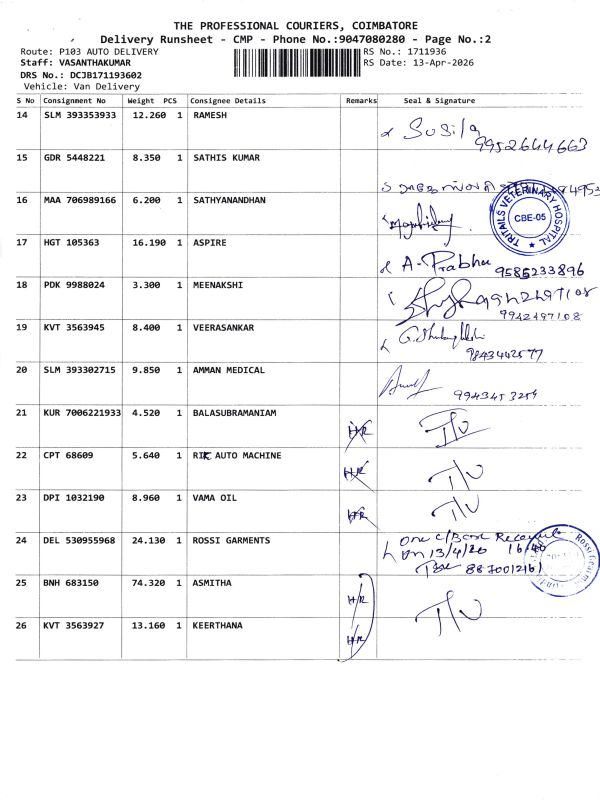 THE PROFESSIONAL COURIERS, COIMBATORE
Delivery Runsheet - CMP - Phone No.:9047080280 - Page No.:2
Route: P103 AUTO DELIVERY RS No.: 1711936
Staff: VASANTHAKUMAR RS Date: 13-Apr-2026
DRS No.: DCJB171193602
Vehicle: Van Delivery
S No Consignment No Weight PCS Consignee Details Remarks Seal & Signature
14 SLM 393353933 12.260 1 RAMESH Susila
9952644663
15 GDR 5448221 8.350 1 SATHIS KUMAR
16 MAA 706989166 6.200 1 SATHYANANDHAN
TRITAILS VETERINARY HOSPITAL
CBE-05
17 HGT 105363 16.190 1 ASPIRE A-Prabhu
9585233896
18 PDK 9988024 3.300 1 MEENAKSHI
9942497108
19 KVT 3563945 8.400 1 VEERASANKAR
9843442577
20 SLM 393302715 9.850 1 AMMAN MEDICAL
9943453254
21 KUR 7006221933 4.520 1 BALASUBRAMANIAM H/R
22 CPT 68609 5.640 1 RIK AUTO MACHINE H/R
23 DPI 1032190 8.960 1 VAMA OIL H/R
24 DEL 530955968 24.130 1 ROSSI GARMENTS One C/Box Received
on 13/4/26 16:40
8870012161
Rossi Garments
25 BNH 683150 74.320 1 ASMITHA H/R
26 KVT 3563927 13.160 1 KEERTHANA H/R